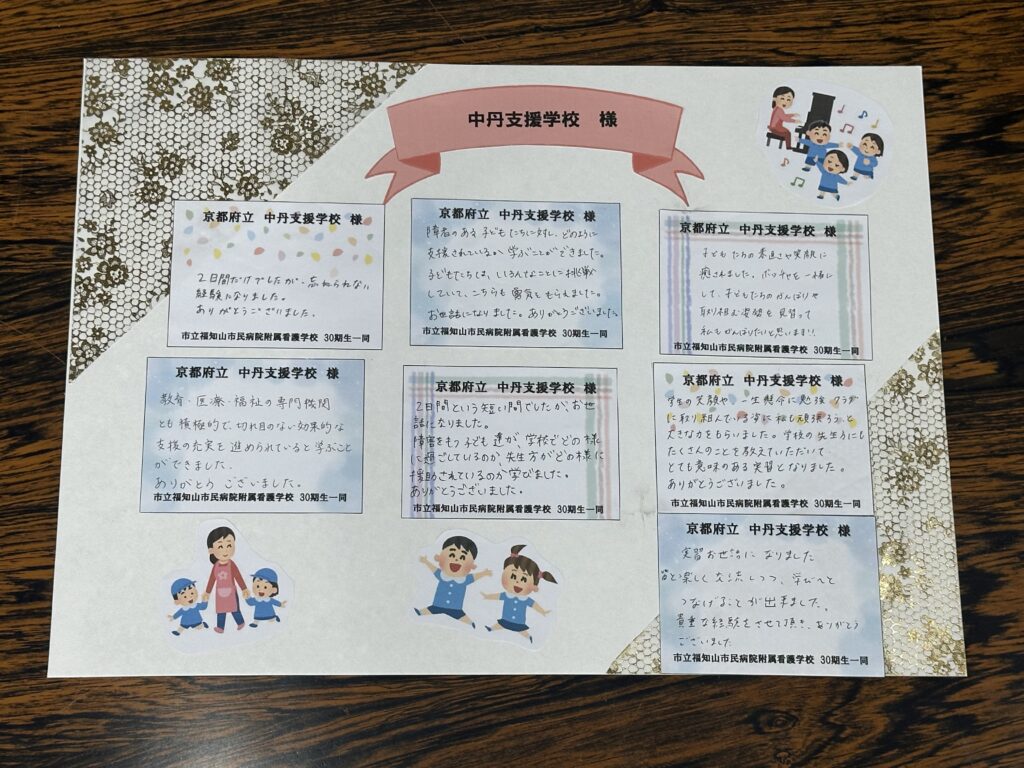 中丹支援学校　様
京都府立 中丹支援学校 様
2日間だけでしたが、忘れられない
経験になりました。
ありがとうございました。
市立福知山市民病院附属看護学校 30期生一同
京都府立 中丹支援学校 様
障害のある子どもたちに対し、どのように
支援されているか学ぶことができました。
子どもたちは、いろんなことに挑戦
していて、こちらも勇気をもらえました。
お世話になりました。ありがとうございました
市立福知山市民病院附属看護学校 30期生一同
京都府立 中丹支援学校 様
子どもたちの素直さや笑顔に
癒されました。ボッチャを一緒に
して、子どもたちのがんばりや
取り組む姿勢を見習って
私もがんばりたいと思います!!
市立福知山市民病院附属看護学校 30期生一同
京都府立 中丹支援学校 様
教育・医療・福祉の専門機関
とも積極的で、切れ目のない効果的な
支援の充実を進められていると学ぶこと
ができました。
ありがとう ございました。
市立福知山市民病院附属看護学校 30期生一同
京都府立 中丹支援学校 様
2日間という短い間でしたが、お世
話になりました。
障害をもつ子ども達が、学校でどの様
に過ごしているのか、先生方がどの様に
援助されているのか学びました。
ありがとうございました。
市立福知山市民病院附属看護学校 30期生一同
京都府立 中丹支援学校 様
学生の笑顔や 一生懸命に勉強 クラブ
に取り組んでいる姿に私も頑張ろうと
大きな力をもらいました。学校の先生方にも
たくさんのことを教えていただいて
とても意味のある実習となりました。
ありがとうございました。
市立福知山市民病院附属看護学校 30期生一同
京都府立 中丹支援学校 様
実習お世話になりました
皆と楽しく交流しつつ、学びへと
つなげることが出来ました。
貴重な経験をさせて頂き、ありがとう
ございました
市立福知山市民病院附属看護学校 30期生一同